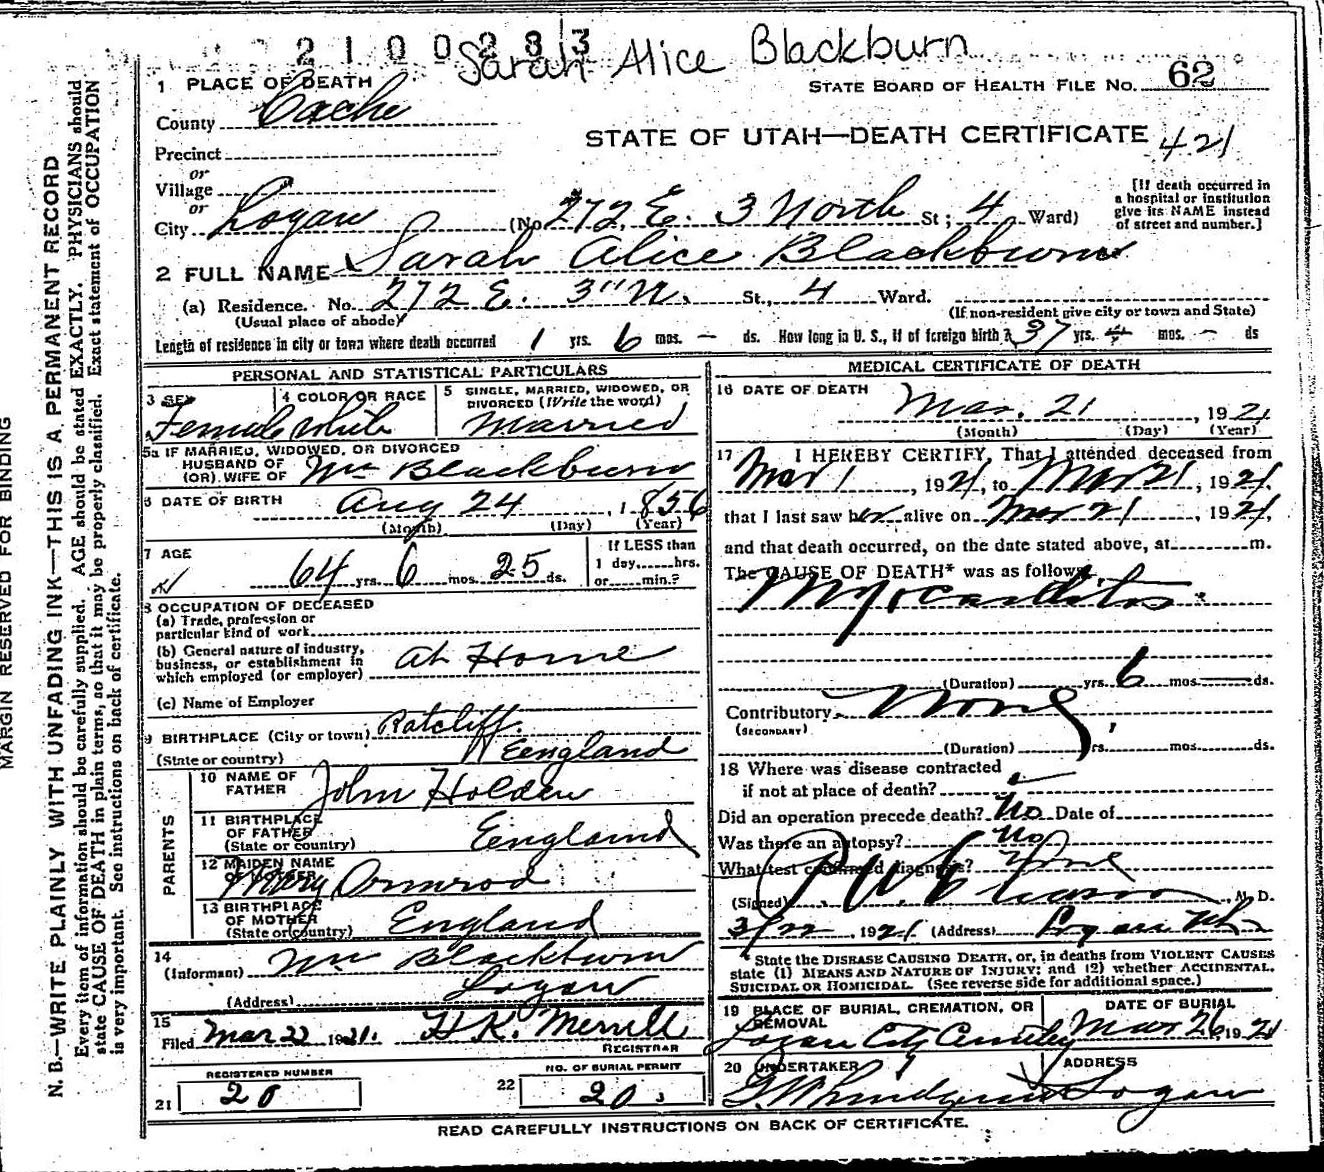 2100283
Sarah Alice Blackburn
1 PLACE OF DEATH
STATE BOARD OF HEALTH FILE NO. 62
County Cache
STATE OF UTAH—DEATH CERTIFICATE 421
Precinct
or
Village
or
City Logan (No 272 E. 3 North St; 4 Ward)
[If death occurred in
a hospital or institution
give its NAME instead
of street and number.]
2 FULL NAME Sarah Alice Blackburn
(a) Residence. No. 272 E. 3" N. St., 4 Ward.
(Usual place of abode) (If non-resident give city or town and State)
Length of residence in city or town where death occurred 1 yrs. 6 mos. – ds. How long in U. S., if of foreign birth? 37 yrs. 4 mos. – ds
PERSONAL AND STATISTICAL PARTICULARS
3 SEX
Female
4 COLOR OR RACE
White
5 SINGLE, MARRIED, WIDOWED, OR
DIVORCED (Write the word)
Married
5a IF MARRIED, WIDOWED, OR DIVORCED
HUSBAND OF
(OR) WIFE OF Wm Blackburn
6 DATE OF BIRTH Aug 24, 1856
(Month) (Day) (Year)
7 AGE
64 yrs. 6 mos. 25 ds.
If LESS than
1 day, hrs.
or min.?
8 OCCUPATION OF DECEASED
(a) Trade, profession or
particular kind of work
(b) General nature of industry,
business, or establishment in
which employed (or employer) at Home
(c) Name of Employer
9 BIRTHPLACE (City or town) Ratcliff
(State or country) Eengland
PARENTS
10 NAME OF
FATHER John Holden
11 BIRTHPLACE
OF FATHER
(State or country) Eengland
12 MAIDEN NAME
OF MOTHER
Mary Ormrod
13 BIRTHPLACE
OF MOTHER
(State or country) England
14
(Informant) Wm Blackburn
(Address) Logan
15
Filed Mar 22 1921. H. K. Merrill
REGISTRAR
REGISTERED NUMBER
21 20
NO. OF BURIAL PERMIT
22 20
MEDICAL CERTIFICATE OF DEATH
16 DATE OF DEATH
Mar. 21, 1921
(Month) (Day) (Year)
17 I HEREBY CERTIFY, That I attended deceased from
Mar 1, 1921, to Mar 21, 1921,
that I last saw her alive on Mar 21, 1921,
and that death occurred, on the date stated above, at m.
The CAUSE OF DEATH* was as follows:
Myocarditis
(Duration) yrs. 6 mos. ds.
Contributory None
(SECONDARY)
(Duration) yrs. mos. ds.
18 Where was disease contracted
if not at place of death?
Did an operation precede death? No Date of
Was there an autopsy? No
What test confirmed diagnosis? None
(Signed) , M. D.
3/22, 1921 (Address) Logan Ut
State the DISEASE CAUSING DEATH, or, in deaths from VIOLENT CAUSES
state (1) MEANS AND NATURE OF INJURY; and (2) whether ACCIDENTAL,
SUICIDAL OR HOMICIDAL. (See reverse side for additional space.)
19 PLACE OF BURIAL, CREMATION, OR
REMOVAL
Logan City Cemetery
DATE OF BURIAL
Mar 26, 1921
20 UNDERTAKER
ADDRESS
Logan
READ CAREFULLY INSTRUCTIONS ON BACK OF CERTIFICATE.
MARGIN RESERVED FOR BINDING
N. B.—WRITE PLAINLY WITH UNFADING INK—THIS IS A PERMANENT RECORD
Every item of information should be carefully supplied. AGE should be stated EXACTLY. PHYSICIANS should
state CAUSE OF DEATH in plain terms, so that it may be properly classified. Exact statement of OCCUPATION
is very important. See instructions on back of certificate.